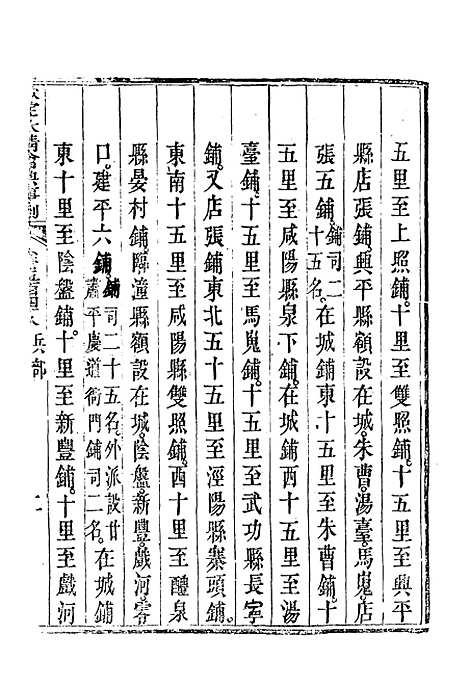 五里至上照鋪。十里至雙照鋪。十五里至興平
縣店張鋪。興平縣額設在城。朱曹。湯臺。馬嵬。店
張五鋪。鋪司二十五名。在城鋪東十五里至朱曹鋪。十
五里至咸陽縣泉下鋪。在城鋪西十五里至湯
臺鋪。十五里至馬嵬鋪。十五里至武功縣長寧
鋪。又店張鋪東北五十五里至涇陽縣寨頭鋪。
東南十五里至咸陽縣雙照鋪。西十里至醴泉
縣晏村鋪。臨潼縣額設在城。陰盤。新豐。戲河。零
口。建平六鋪。鋪司二十五名。外派設甘肅平慶道衙門鋪司二名。在城鋪
東十里至陰盤鋪。十里至新豐鋪。十里至戲河
欽定大清會典事例 兵部 二